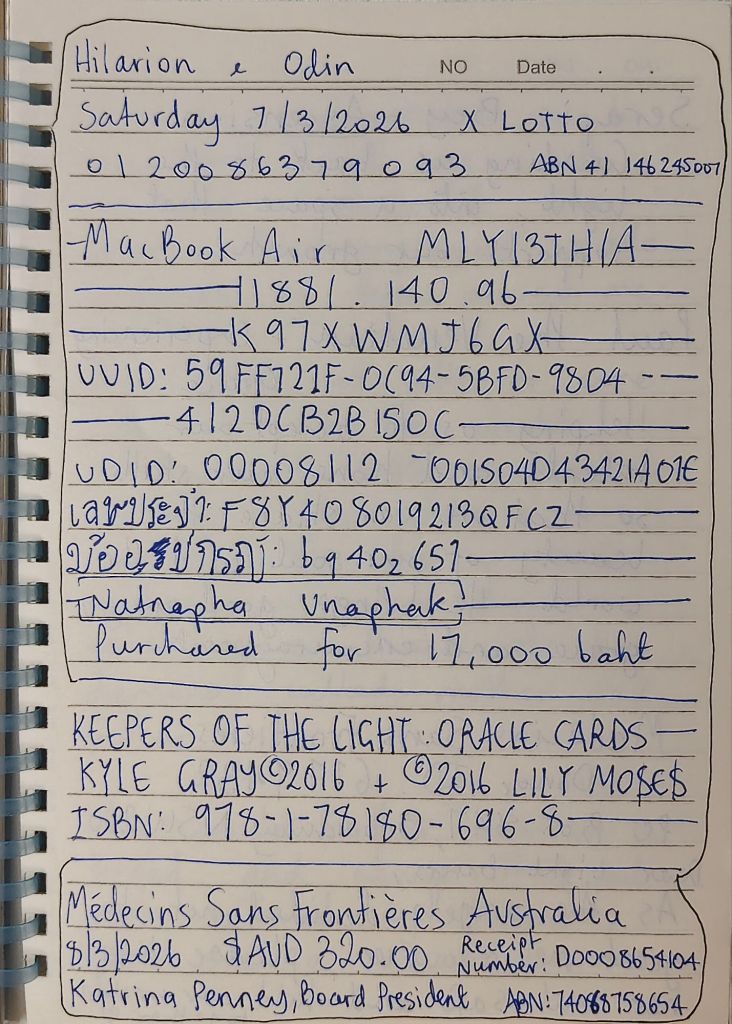 Hilarion & Odin NO Date . .
Saturday 7/3/2026 X LOTTO
0120086379093 ABN 41 146245007
MacBook Air MLY13TH/A
11881.140.96
K97XWMJ6GX
UUID: 59FF722F-0C94-5BFD-9804-
412DCB2B150C
UDID: 00008112-001504D43421A01E
เลขประจำ: F8Y408019213QFCZ
: bq402651
Natnapha Unaphak
Purchased for 17,000 baht
KEEPERS OF THE LIGHT: ORACLE CARDS
KYLE GRAY ©2016 + ©2016 LILY MO$E$
ISBN: 978-1-78180-696-8
Médecins Sans Frontières Australia
8/3/2026 $AUD 320.00 Receipt Number: D0008654104
Katrina Penney, Board President ABN: 74068758654